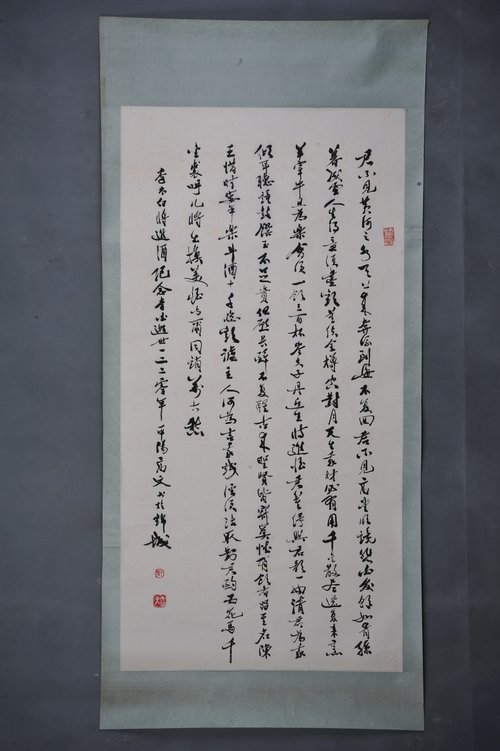 君不見黃河之水天上來奔流到海不復回君不見高堂明鏡悲白髮朝如青絲
暮成雪人生得意須盡歡莫使金樽空對月天生我材必有用千金散盡還復來烹
羊宰牛且為樂會須一飲三百杯岑夫子丹丘生將進酒君莫停與君歌一曲請君為我
傾耳聽鐘鼓饌玉不足貴但願長醉不復醒古來聖賢皆寂寞惟有飲者留其名陳
王昔時宴平樂斗酒十千恣歡謔主人何為言少錢徑須沽取對君酌五花馬千
金裘呼兒將出換美酒與爾同銷萬古愁
李太白將進酒紀念李白逝世一二二零年平陽高文書於錦城